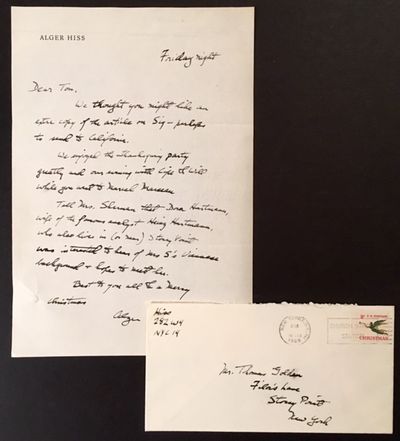 ALGER HISS
Friday night
Dear Tom,
We thought you might like an
extra copy of the article on Sig — perhaps
to send to California.
We enjoyed the thanksgiving party
greatly and our evening with
while you went to Marcel Marceau
Tell Mrs. Sherman that Dora Hartmann,
wife of the famous analyst Heinz Hartmann,
who also lives in (or near) Stony Point
was to hear of Mrs S's Viennese
background & hopes to meet her.
Best to you all & a Merry
Christmas
Alger
Hiss
NYC 14
CHRISTMAS
Mr. Thomas
Lane
Stony Point
New York